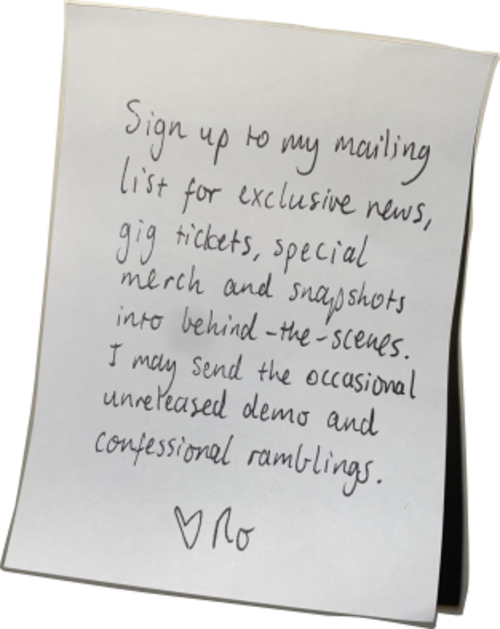 Sign up to my mailing
list for exclusive news,
gig tickets, special
merch and snapshots
into behind-the-scenes.
I may send the occasional
unreleased demo and
confessional ramblings.
♡ Ro